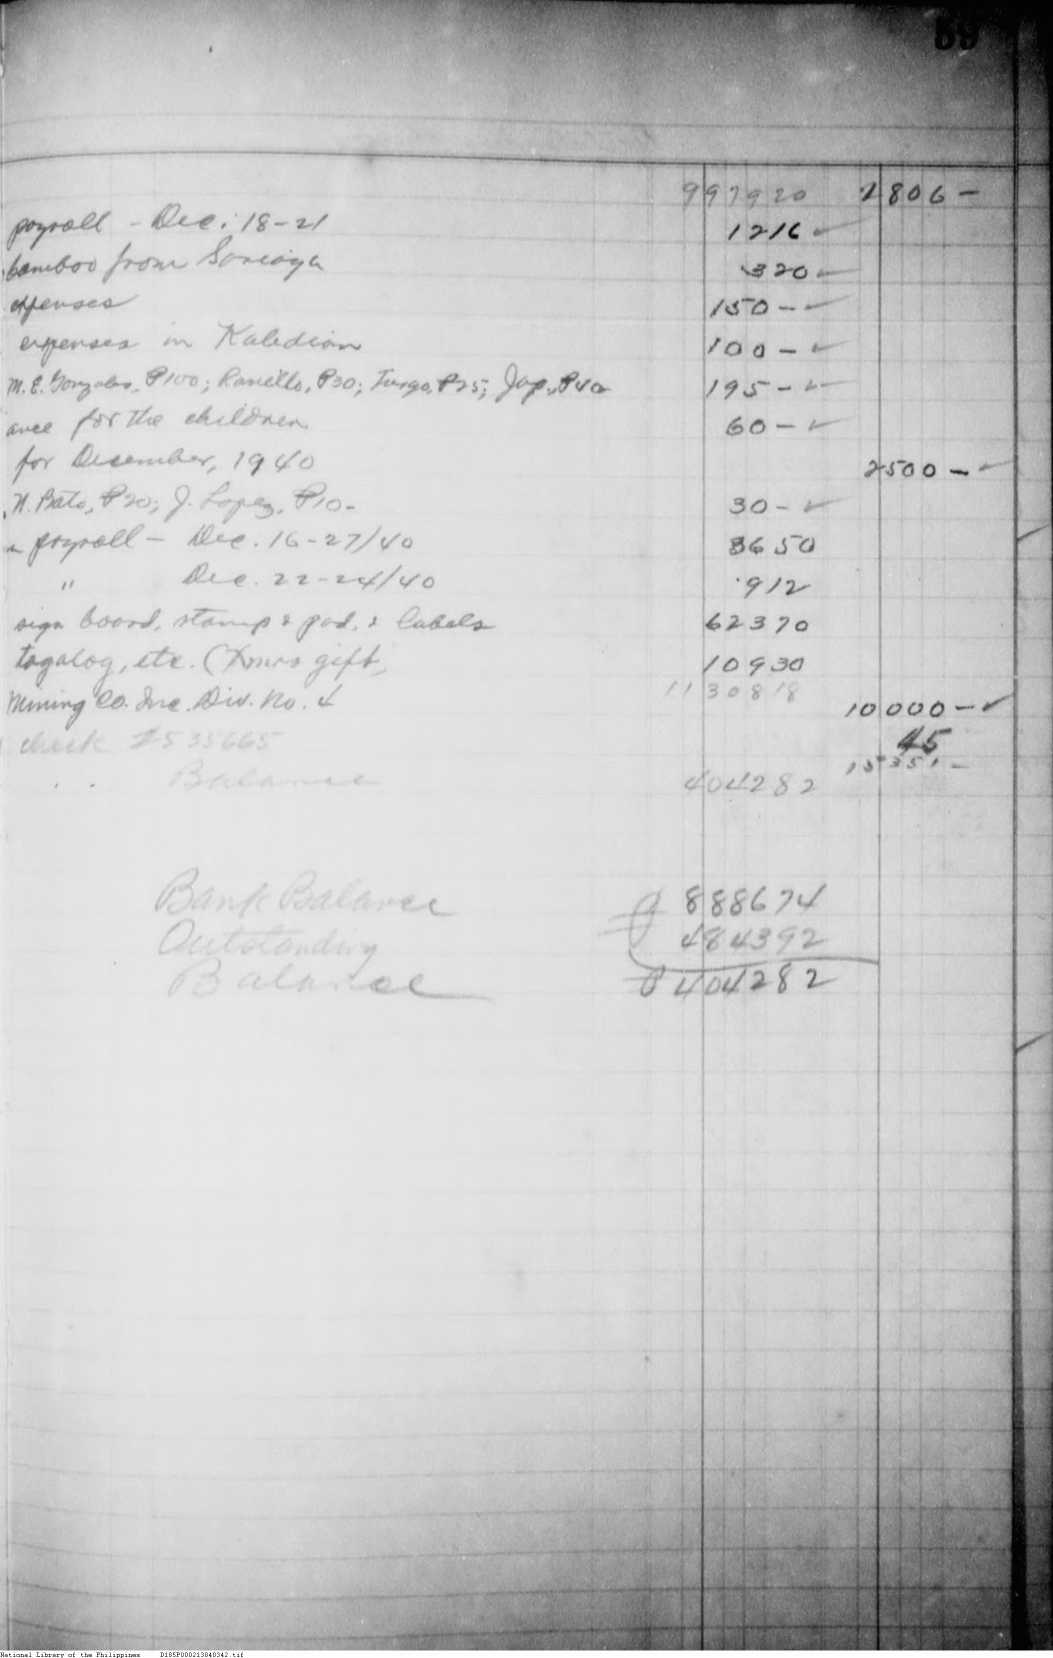 69
997920 2806 -
payroll - Dec. 18-21 1216
bamboo from Soriaga 320
expenses 150 -
expenses in Kaledian 100 -
M. E. Gonzales, ₱100; Ranillo, ₱30; Turgo, ₱25; Jap., ₱40 195 -
ance for the children 60 -
for December, 1940 2500 -
N. Bato, ₱20; J. Lopez, ₱10 - 30 -
payroll - Dec. 16-27/40 3650
" Dec. 22-24/40 912
sign board, stamp & pad, & labels 62370
tagalog, etc. (Xmas gift, 10930
1130818
Mining Co. Inc. Div. No. 4 10000 -
check 2535665 45
15351 -
Balance 404282
Bank Balance ₱ 888674
Outstanding 484392
Balance ₱ 404282
National Library of the Philippines D185P000213840342.tif